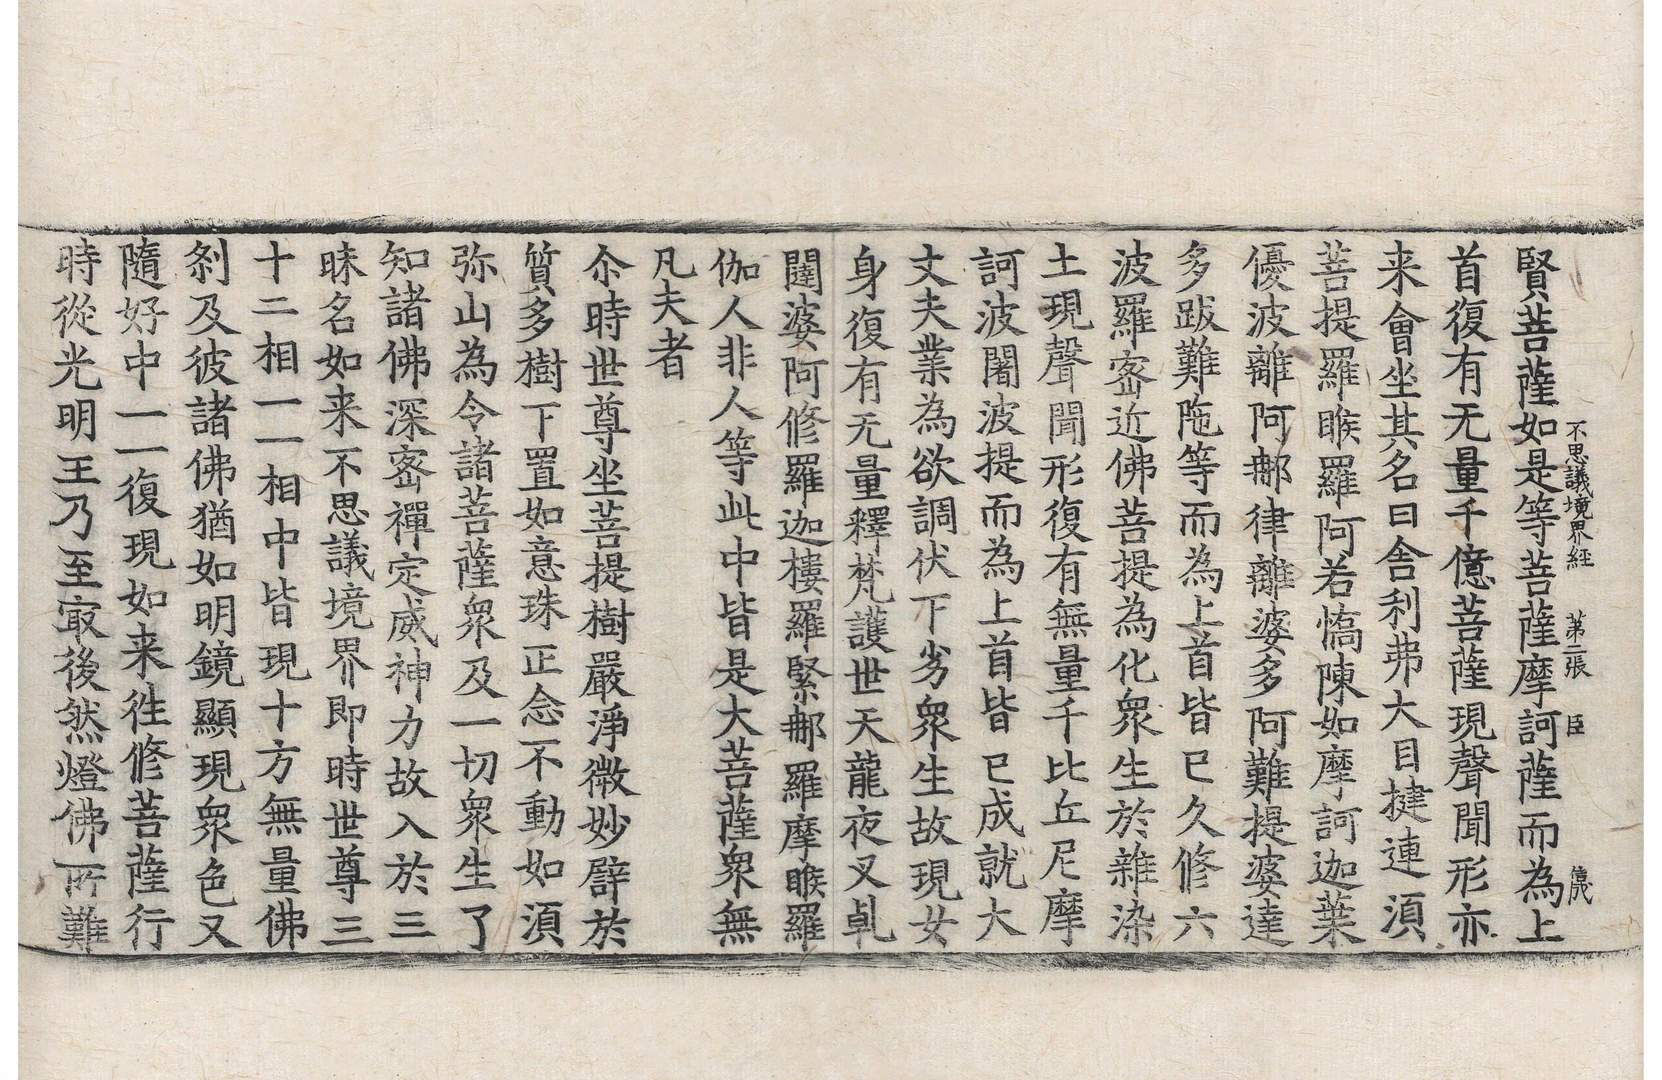 不思議境界經 第二張 臣
賢菩薩如是等菩薩摩訶薩而為上
首復有无量千億菩薩現聲聞形亦
来會坐其名曰舍利弗大目揵連須
菩提羅睺羅阿若憍陳如摩訶迦葉
優波離阿㝹律離婆多阿難提婆達
多跋難陁等而為上首皆已久修六
波羅宻近佛菩提為化衆生於雜染
土現聲聞形復有無量千比丘尼摩
訶波闍波提而為上首皆已成就大
丈夫業為欲調伏下劣衆生故現女
身復有无量釋梵護世天龍夜叉乹
闥婆阿修羅迦樓羅緊那羅摩睺羅
伽人非人等此中皆是大菩薩衆無
凡夫者
尒時世尊坐菩提樹嚴淨微妙辟於
質多樹下置如意珠正念不動如須
弥山為令諸菩薩衆及一切衆生了
知諸佛深宻禪定威神力故入於三
昧名如来不思議境界即時世尊三
十二相一一相中皆現十方無量佛
刹及彼諸佛猶如明鏡顯現衆色又
隨好中一一復現如来往修菩薩行
時從光明王乃至㝡後然燈佛所難